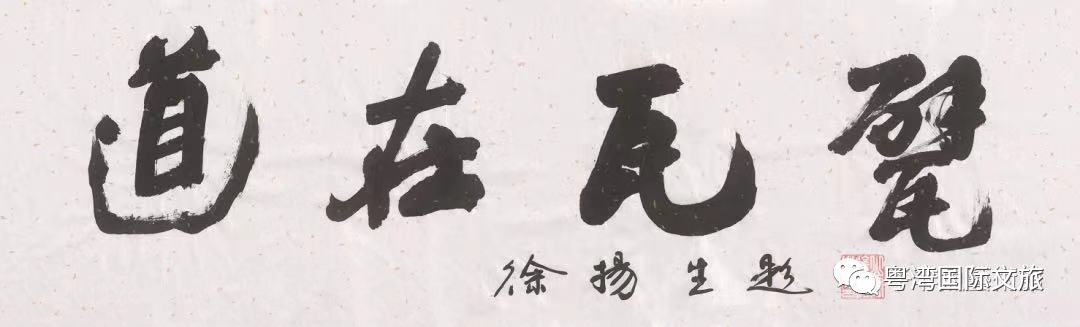 道在瓦甓
徐揚生題
粤湾国际文旅